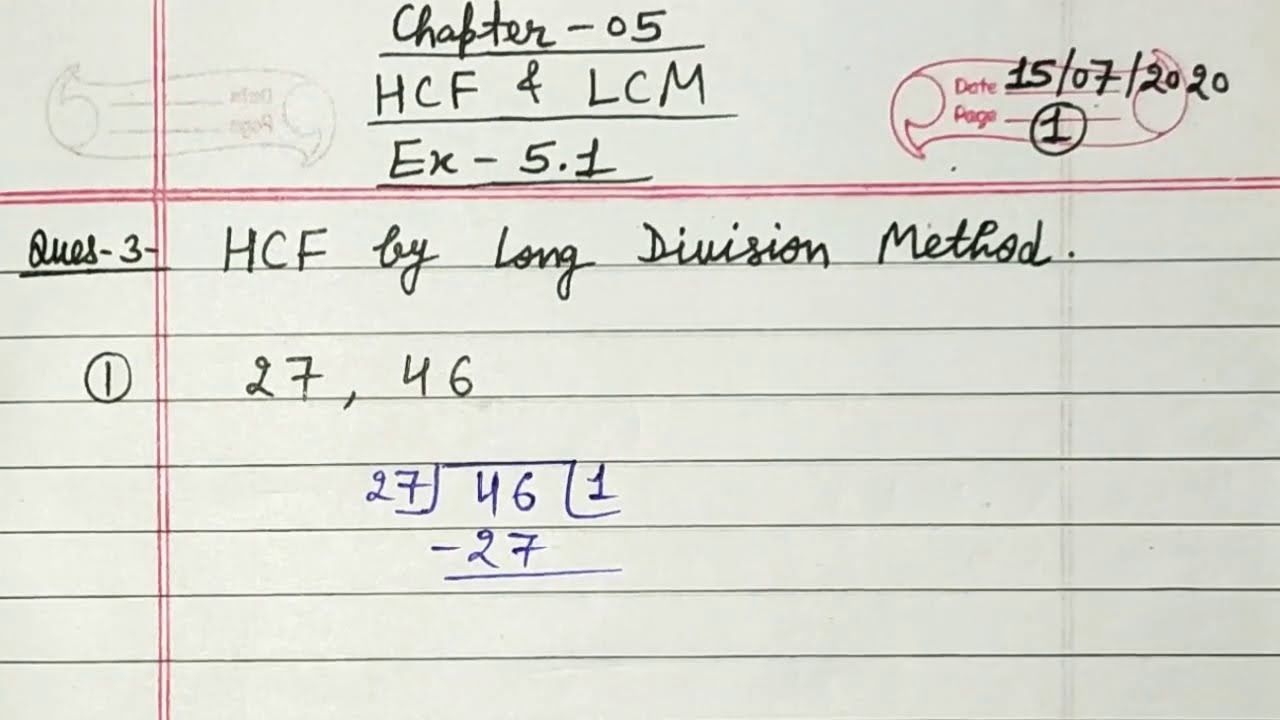 Chapter - 05
HCF & LCM
Ex - 5.1
Date 15/07/2020
Page 1
Ques-3- HCF by Long Division Method.
① 27, 46
27) 46 (1
-27